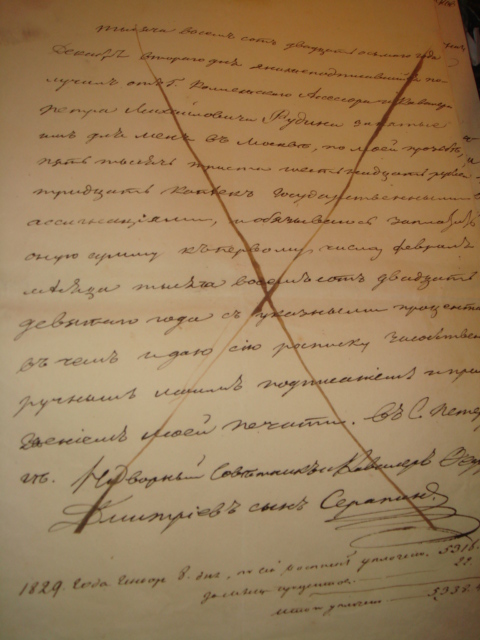 тысяча восемь сотъ двадцать осьмого года
Декабря второго дня я нижеподписавшийся по
лучилъ отъ Г. Коллежского Асессора и Кавалера
Петра Михайловича Рудина занятые
имъ для меня въ Москвѣ, по моей прозьбѣ,
пять тысячь триста шестнадцать рублей
тридцать копѣекъ Государственными
ассигнаціями, и обязываюсь заплатить
оную сумму къ первому числу февраля
мѣсяца тысяча восемь сотъ двадцать
девятаго года съ указными процентами
въ чемъ и даю сію росписку за собственно
ручнымъ моимъ подписаніемъ и при
ложеніемъ моей печати. Въ С. Петер
гъ. Надворный Совѣтникъ и Кавалеръ
Дмитріевъ сынъ Серапинъ.
1829. года Генваря 8. дня, по сей роспискѣ уплочено. 5316.
за мѣсяцъ процентовъ
итого уплочено 5338.